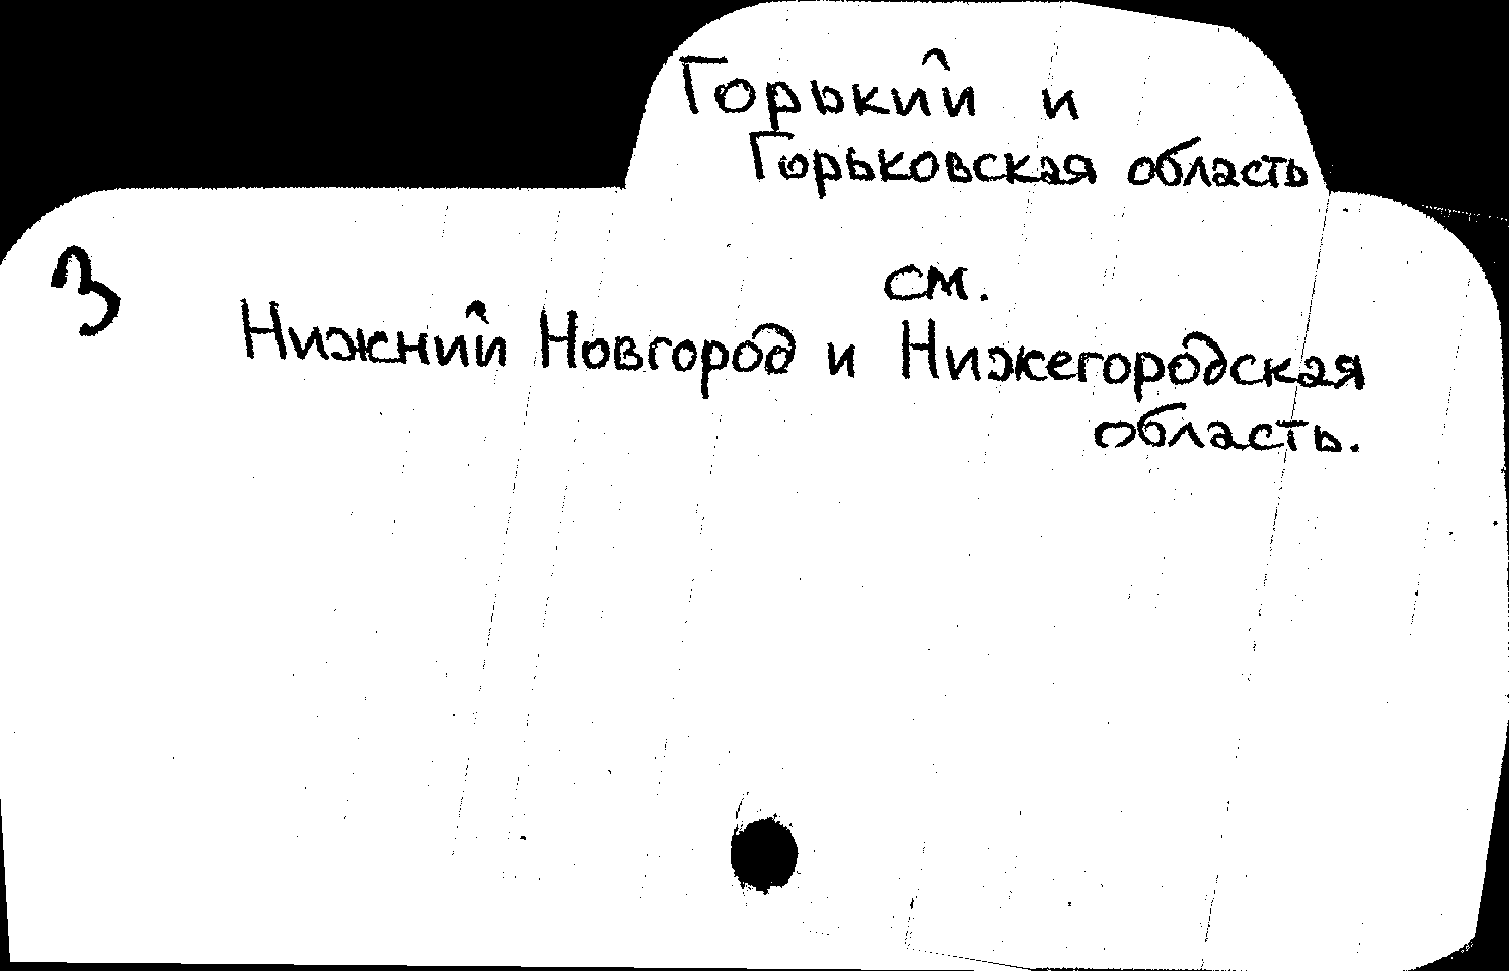 Горький и
Горьковская область
см.
3
Нижний Новгород и Нижегородская
область.